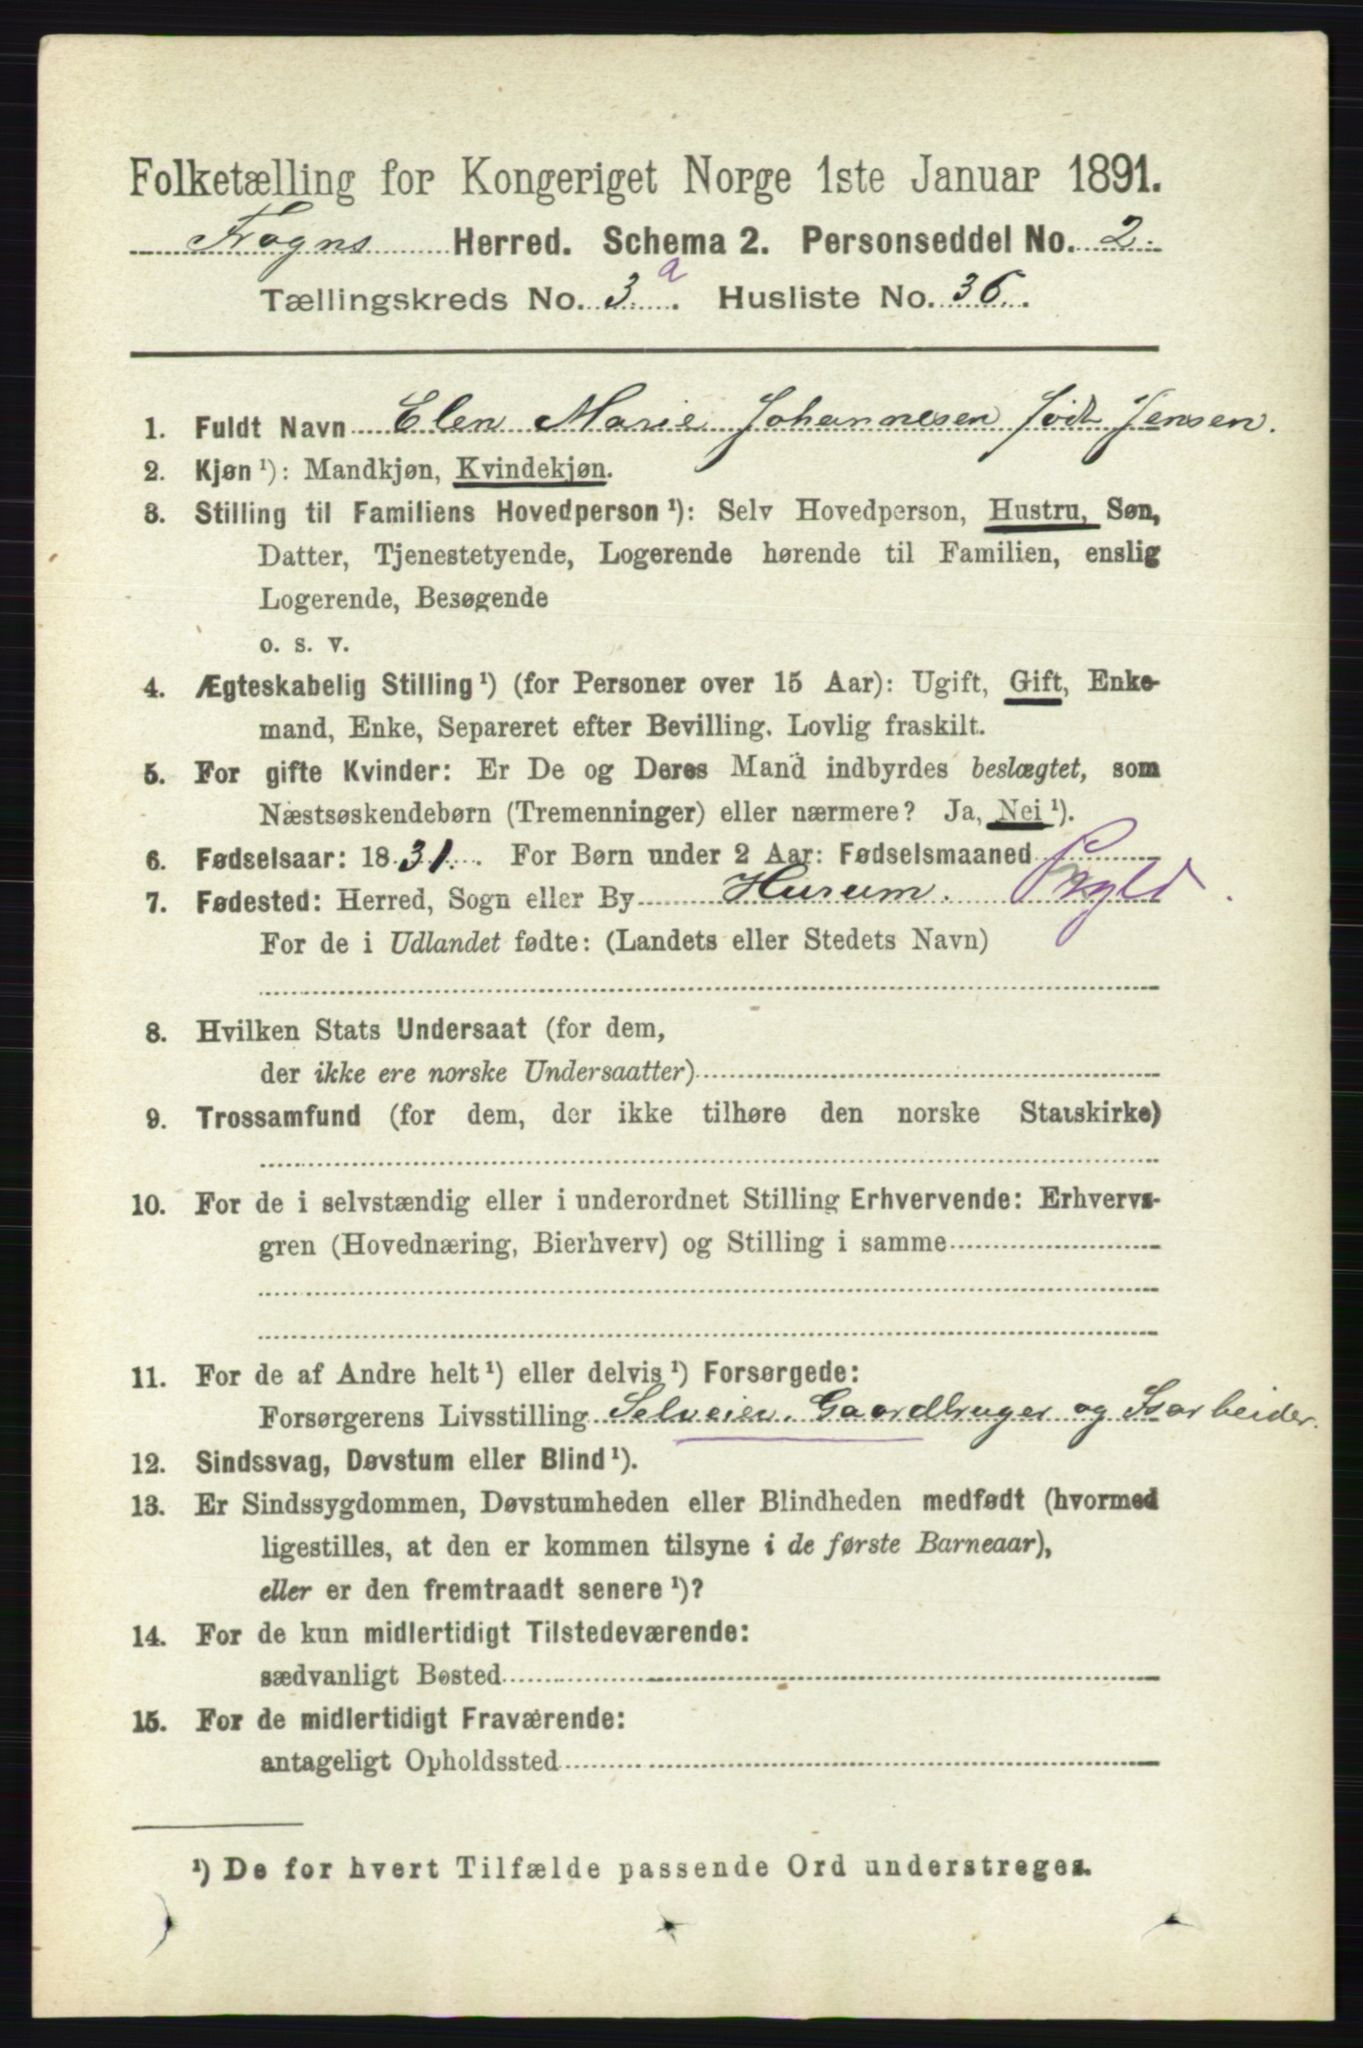 Folketælling for Kongeriget Norge 1ste Januar 1891.
Frogns Herred. Schema 2. Personseddel No. 2.
Tællingskreds No. 3 a. Husliste No. 36.
1. Fuldt Navn Elen Marie Johannesen født Jensen.
2. Kjøn ¹): Mandkjøn, Kvindekjøn.
3. Stilling til Familiens Hovedperson ¹): Selv Hovedperson, Hustru, Søn,
Datter, Tjenestetyende, Logerende hørende til Familien, enslig
Logerende, Besøgende
o. s. v.
4. Ægteskabelig Stilling ¹) (for Personer over 15 Aar): Ugift, Gift, Enke-
mand, Enke, Separeret efter Bevilling. Lovlig fraskilt.
5. For gifte Kvinder: Er De og Deres Mand indbyrdes beslægtet, som
Næstsøskendebørn (Tremenninger) eller nærmere? Ja, Nei ¹).
6. Fødselsaar: 1831. For Børn under 2 Aar: Fødselsmaaned
7. Fødested: Herred, Sogn eller By Hurum.
For de i Udlandet fødte: (Landets eller Stedets Navn)
8. Hvilken Stats Undersaat (for dem,
der ikke ere norske Undersaatter)
9. Trossamfund (for dem, der ikke tilhøre den norske Statskirke)
10. For de i selvstændig eller i underordnet Stilling Erhvervende: Erhvervs-
gren (Hovednæring, Bierhverv) og Stilling i samme
11. For de af Andre helt ¹) eller delvis ¹) Forsørgede:
Forsørgerens Livsstilling Selveier, Gaardbruger og Isarbeider.
12. Sindssvag, Døvstum eller Blind ¹).
13. Er Sindssygdommen, Døvstumheden eller Blindheden medfødt (hvormed
ligestilles, at den er kommen tilsyne i de første Barneaar),
eller er den fremtraadt senere ¹)?
14. For de kun midlertidigt Tilstedeværende:
sædvanligt Bosted
15. For de midlertidigt Fraværende:
antageligt Opholdssted
¹) De for hvert Tilfælde passende Ord understreges.